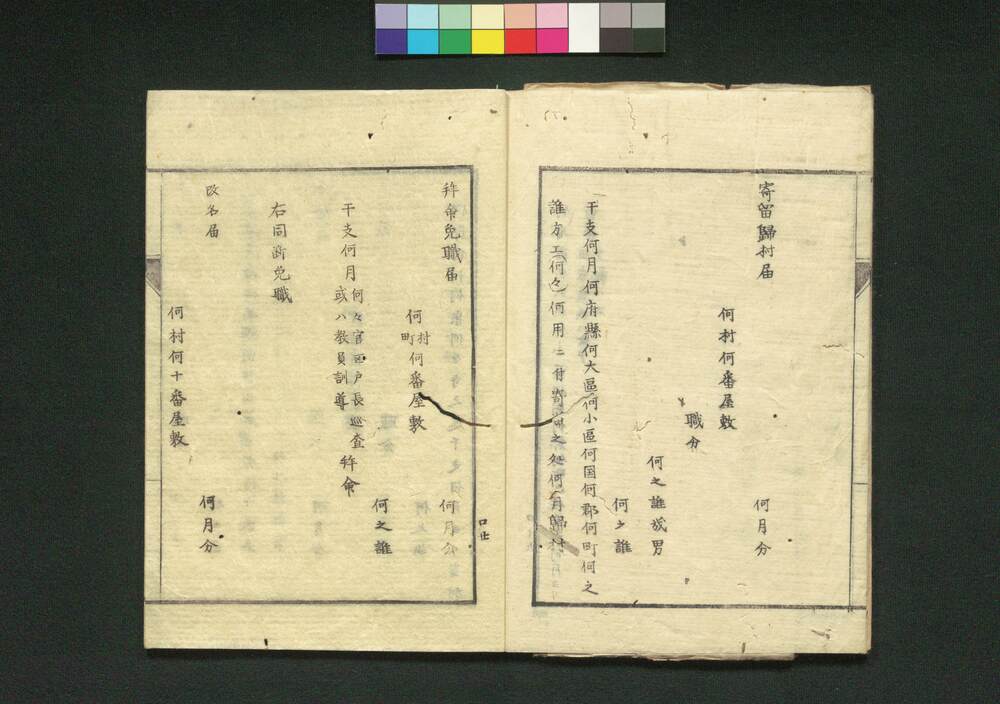 寄留歸村届
何月分
何村何番屋敷
職分
何之誰幾男
何之誰
干支何月何府縣何大區何小區何国何郡何町何之
誰方エ(何々)何用ニ付寄留之処何月歸村
拜命免職届
何月分
何町村何番屋敷
何之誰
干支何月何々官區戸長巡査拜命
或ハ教員訓導
右同断免職
改名届
何月分
何村何十番屋敷